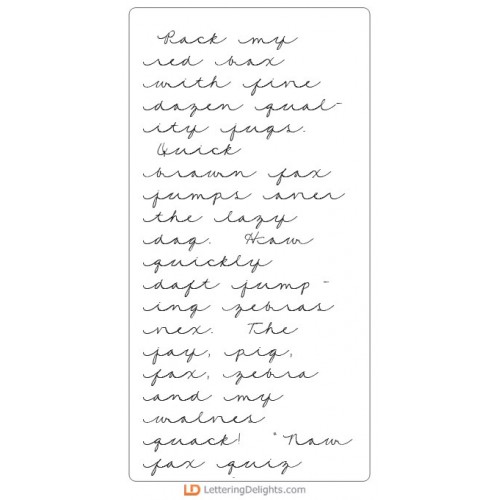 Pack my
red box
with five
dozen qual-
ity jugs.
Quick
brown fox
jumps over
the lazy
dog. How
quickly
daft jump-
ing zebras
vex. The
jay, pig,
fox, zebra
and my
wolves
quack! "Now
fox quiz
LD LetteringDelights.com